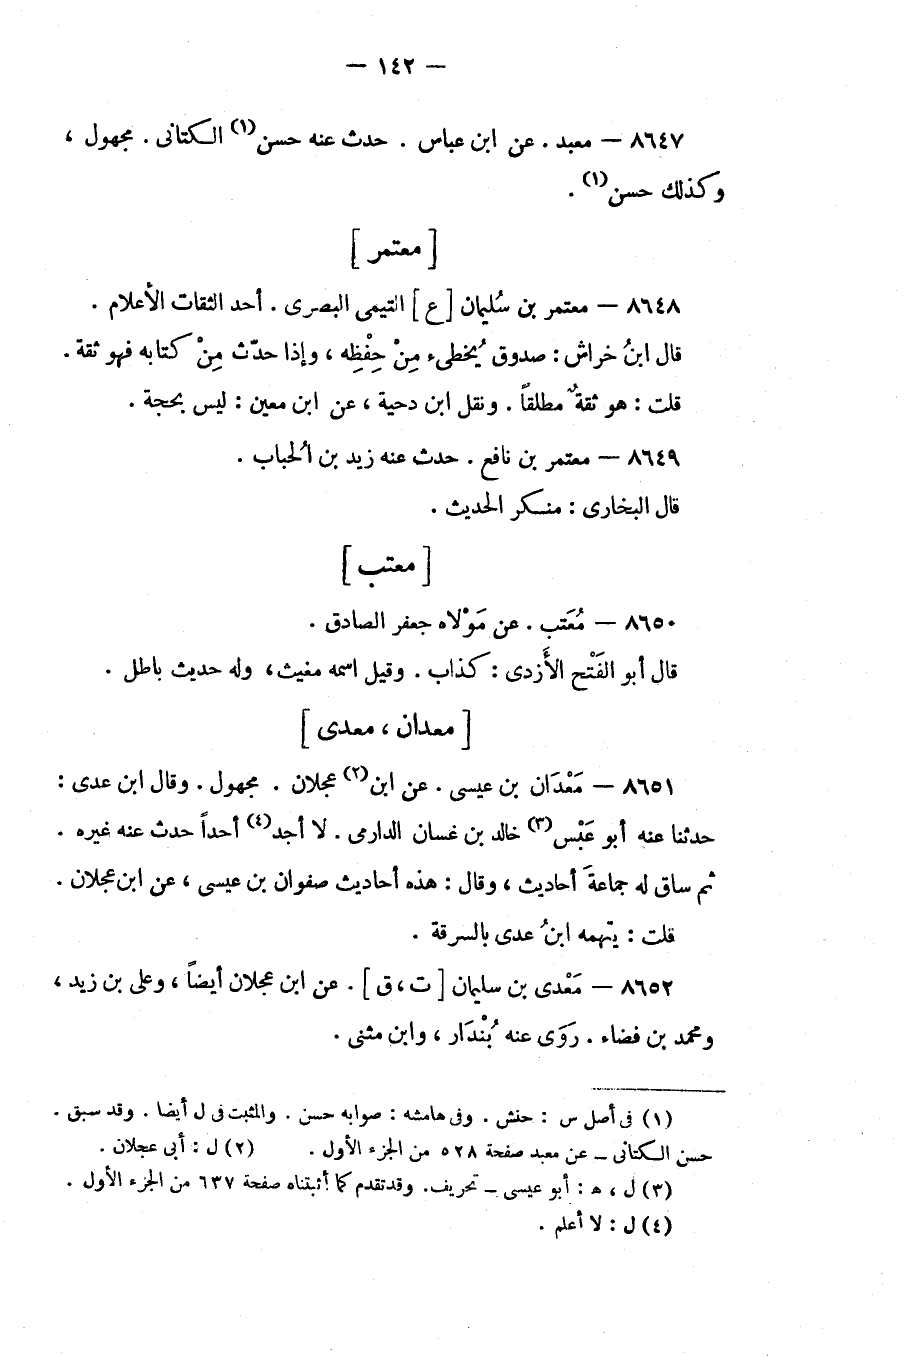 — ١٤٢ —
٨٦٤٧ — معبد . عن ابن عباس . حدث عنه حسن(١) الكتانى . مجهول ،
وكذلك حسن(١) .
[ معتمر ]
٨٦٤٨ — معتمر بن سُليمان [ ع ] التيمى البصرى . أحد الثقات الأعلام .
قال ابنُ خراش : صدوق يُخطىء مِنْ حِفْظِه ، وإذا حدّث مِنْ كتابه فهو ثقة .
قلت : هو ثقةٌ مطلقاً . ونقل ابن دحية ، عن ابن معين : ليس بحجة .
٨٦٤٩ — معتمر بن نافع . حدث عنه زيد بن الُحباب .
قال البخارى : منكر الحديث .
[ معتب ]
٨٦٥٠ — مُعَتب . عن مَوْلاه جعفر الصادق .
قال أبو الفَتْح الأَزدى : كذاب . وقيل اسمه مغيث ، وله حديث باطل .
[ معدان ، معدى ]
٨٦٥١ — مَعْدَان بن عيسى . عن ابن(٢) عجلان . مجهول . وقال ابن عدى :
حدثنا عنه أبو عَبْس(٣) خالد بن غسان الدارمى . لا أجد(٤) أحداً حدث عنه غيره .
ثم ساق له جماعةَ أحاديث ، وقال : هذه أحاديث صفوان بن عيسى ، عن ابن عجلان .
قلت : يتهمه ابنُ عدى بالسرقة .
٨٦٥٢ — مَعْدى بن سليمان [ ت ، ق ] . عن ابن عجلان أيضاً ، وعلى بن زيد ،
ومحمد بن فضاء . رَوَى عنه بُنْدَار ، وابن مثنى .
(١) فى أصل س : حنش . وفى هامشه : صوابه حسن . والمثبت فى ل أيضا . وقد سبق .
حسن الكنانى ــ عن معبد صفحة ٥٢٨ من الجزء الأول . (٢) ل : أبى عجلان .
(٣) ل ، هـ : أبو عيسى ــ تحريف . وقد تقدم كما أثبتناه صفحة ٦٣٧ من الجزء الأول .
(٤) ل : لا أعلم .